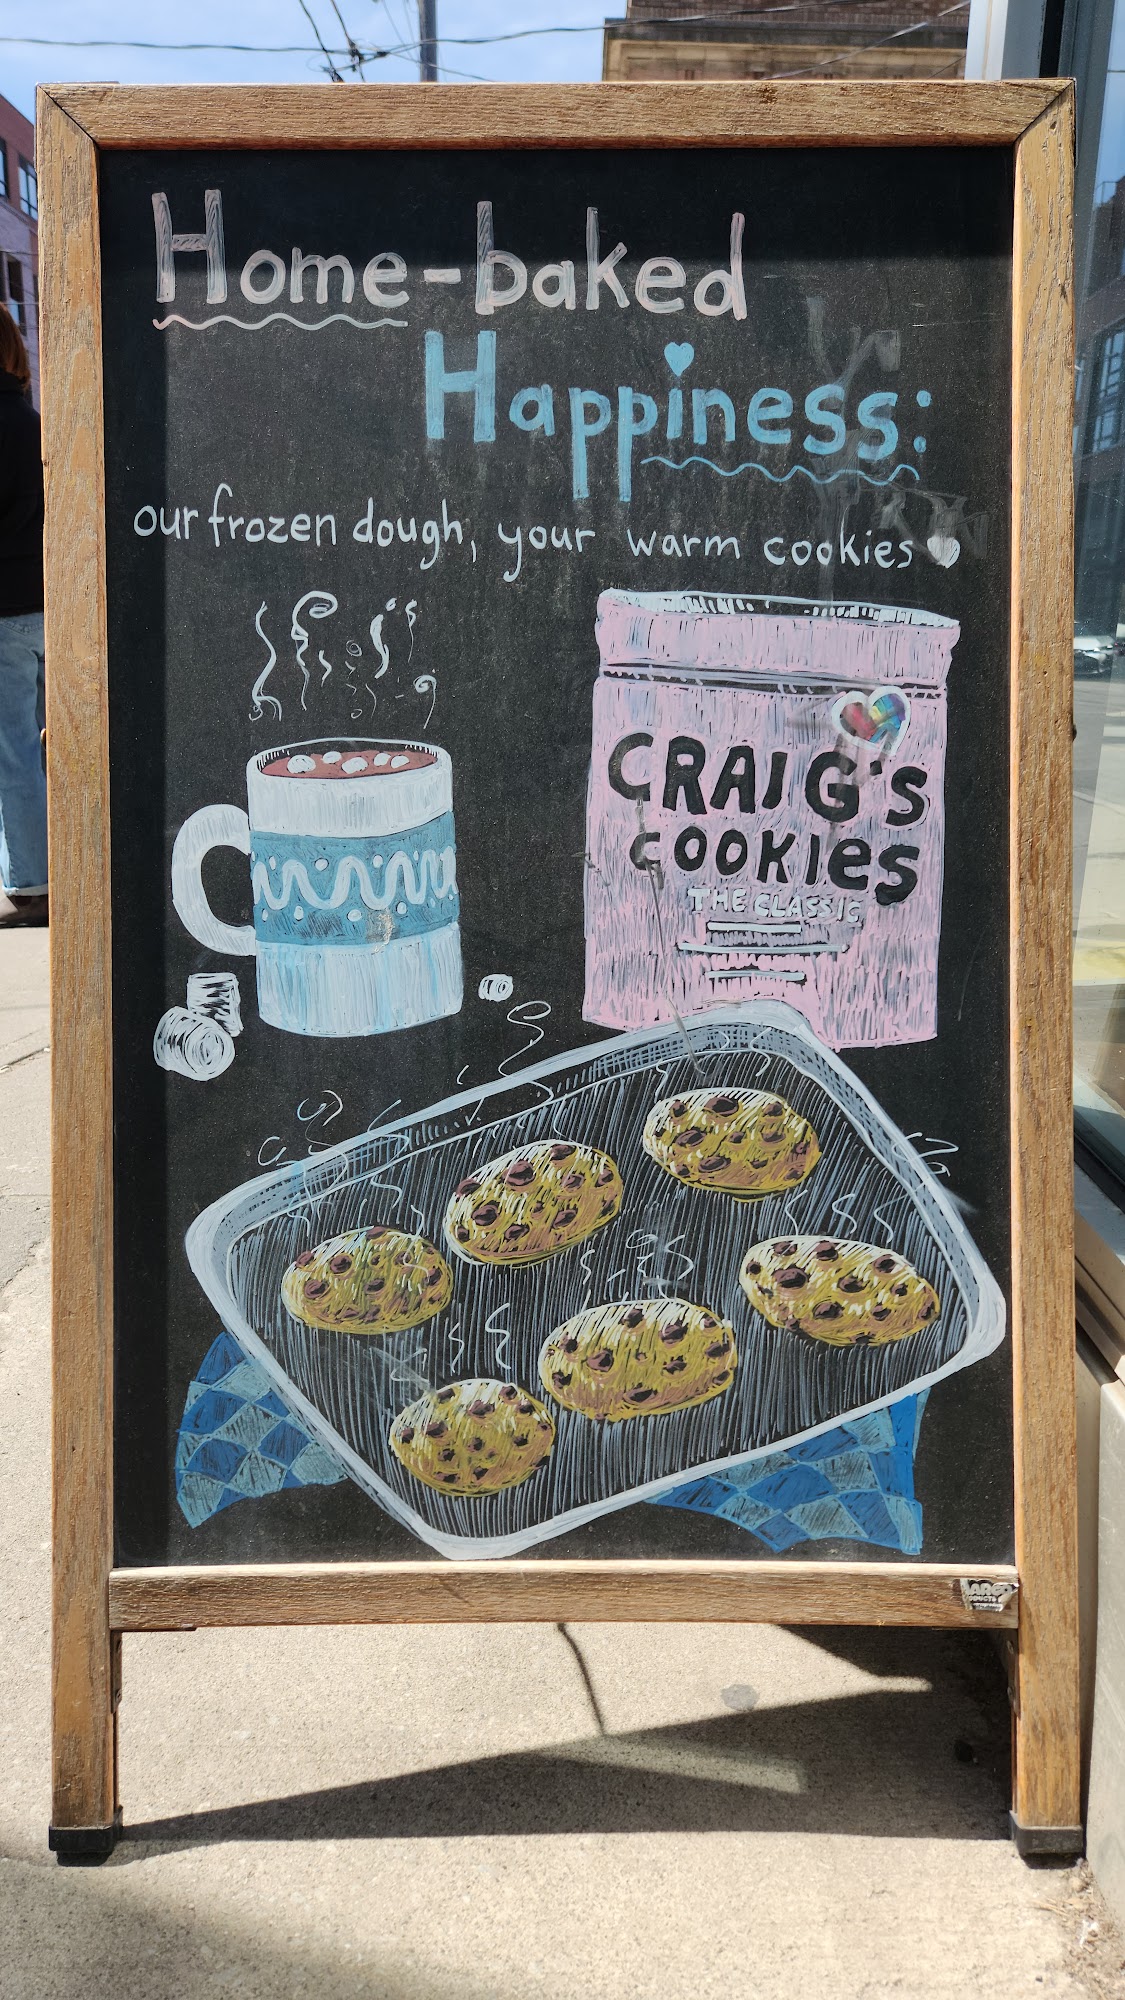 Home-baked
Happiness:
our frozen dough, your warm cookies
CRAIG'S
COOKIES
THE CLASSIC